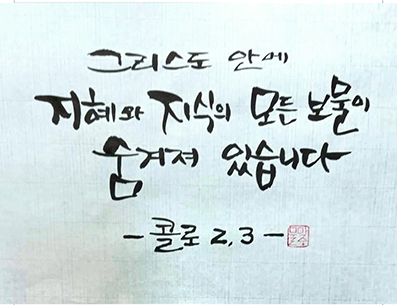 그리스도 안에
지혜와 지식의 모든 보물이
숨겨져 있습니다
- 콜로 2,3 -